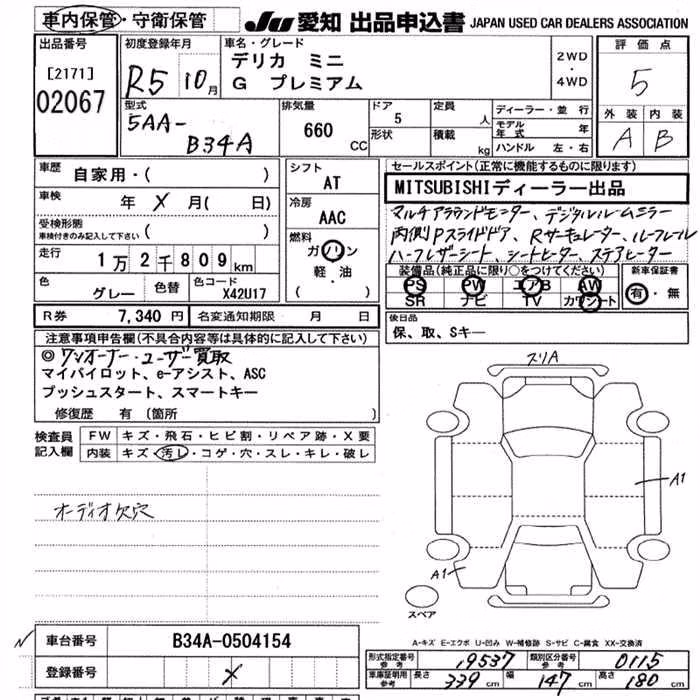 車内保管・守衛保管
JU 愛知 出品申込書 JAPAN USED CAR DEALERS ASSOCIATION
出品番号
[2171]
02067
初度登録年月
R5 10月
車名・グレード
デリカ ミニ
G プレミアム
2WD
・
4WD
評価点
5
外装 内装
A B
型式
5AA-
B34A
排気量
660
CC
ドア
5
形状
定員
人
積載
kg
ディーラー・並行
モデル年式 年
ハンドル 左・右
車歴
自家用・( )
車検
年 X 月( 日)
受検形態
車検付きのみ記入して下さい ( )
走行
1万2千809km
色
グレー
色替
色コード
X42U17
シフト
AT
冷房
AAC
燃料
ガソリン
軽・油
( )
セールスポイント(正常に機能するものに限ります)
MITSUBISHIディーラー出品
マルチアラウンドモニター、デジタルルームミラー
両側Pスライドドア、Rサーキュレーター、ルーフレール
ハーフレザーシート、シートヒーター、ステアヒーター
装備品(純正品に限り○をつけてください)
PS PW エアB AW
SR ナビ TV カワシート
新車保証書
有・無
R券 7,340円 名変通知期限 月 日
後日品
保、取、Sキー
注意事項申告欄(不具合内容等は具体的に記入して下さい)
◎ワンオーナー・ユーザー買取
マイパイロット、e-アシスト、ASC
プッシュスタート、スマートキー
修復歴 有 (箇所 )
検査員
記入欄
FW キズ・飛石・ヒビ割・リペア跡・X要
内装 キズ・汚レ・コゲ・穴・スレ・キレ・破レ
オーディオ欠穴
スリA
A1
A1
スペア
A-キズ E-エクボ U-凹み W-補修跡 S-サビ C-腐食 XX-交換済
車台番号 B34A-0504154
登録番号 X
形式指定番号 参考 19537 類別区分番号 参考 0115
車庫証明用 参考 長さ 339 cm 幅 147 cm 高さ 180 cm